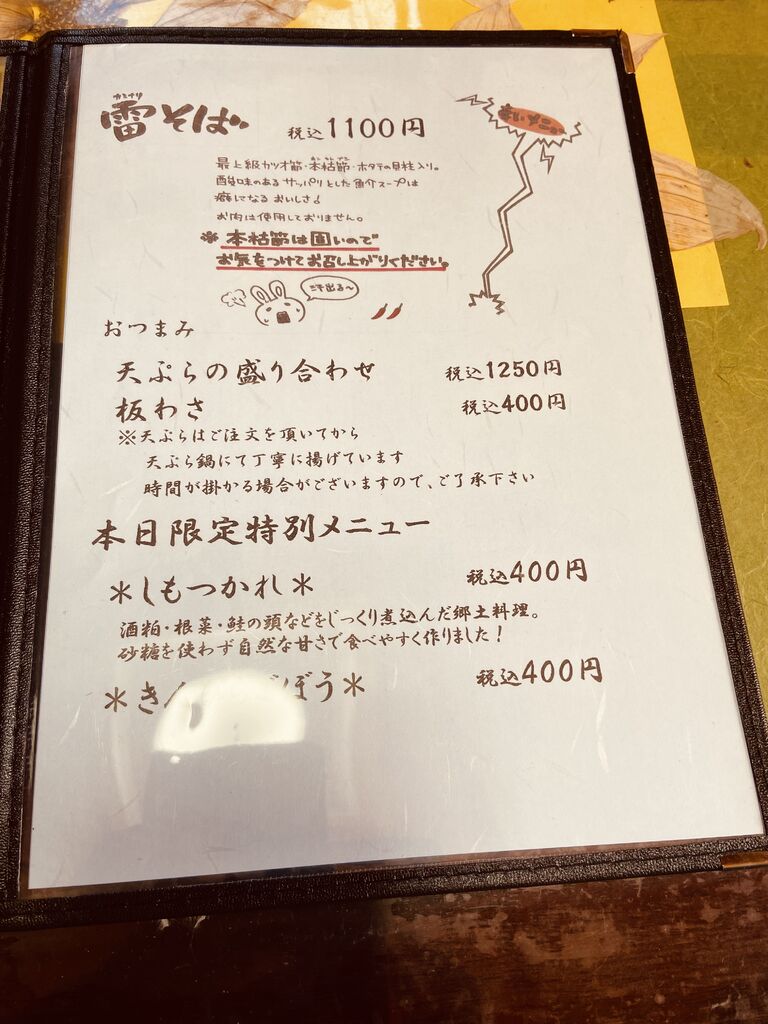 カミナリ
雷そば
税込1100円
最上級カツオ節・本枯節・ホタテの貝柱入り。
酸味のあるサッパリとした魚介スープは
癖になるおいしさ♪
お肉は使用しておりません。
※本枯節は固いので
お気をつけてお召し上がりください。
汗出る〜
おつまみ
天ぷらの盛り合わせ 税込1250円
板わさ 税込400円
※天ぷらはご注文を頂いてから
天ぷら鍋にて丁寧に揚げています
時間が掛かる場合がございますので、ご了承下さい
本日限定特別メニュー
＊しもつかれ＊ 税込400円
酒粕・根菜・鮭の頭などをじっくり煮込んだ郷土料理。
砂糖を使わず自然な甘さで食べやすく作りました！
＊き ぼう＊ 税込400円